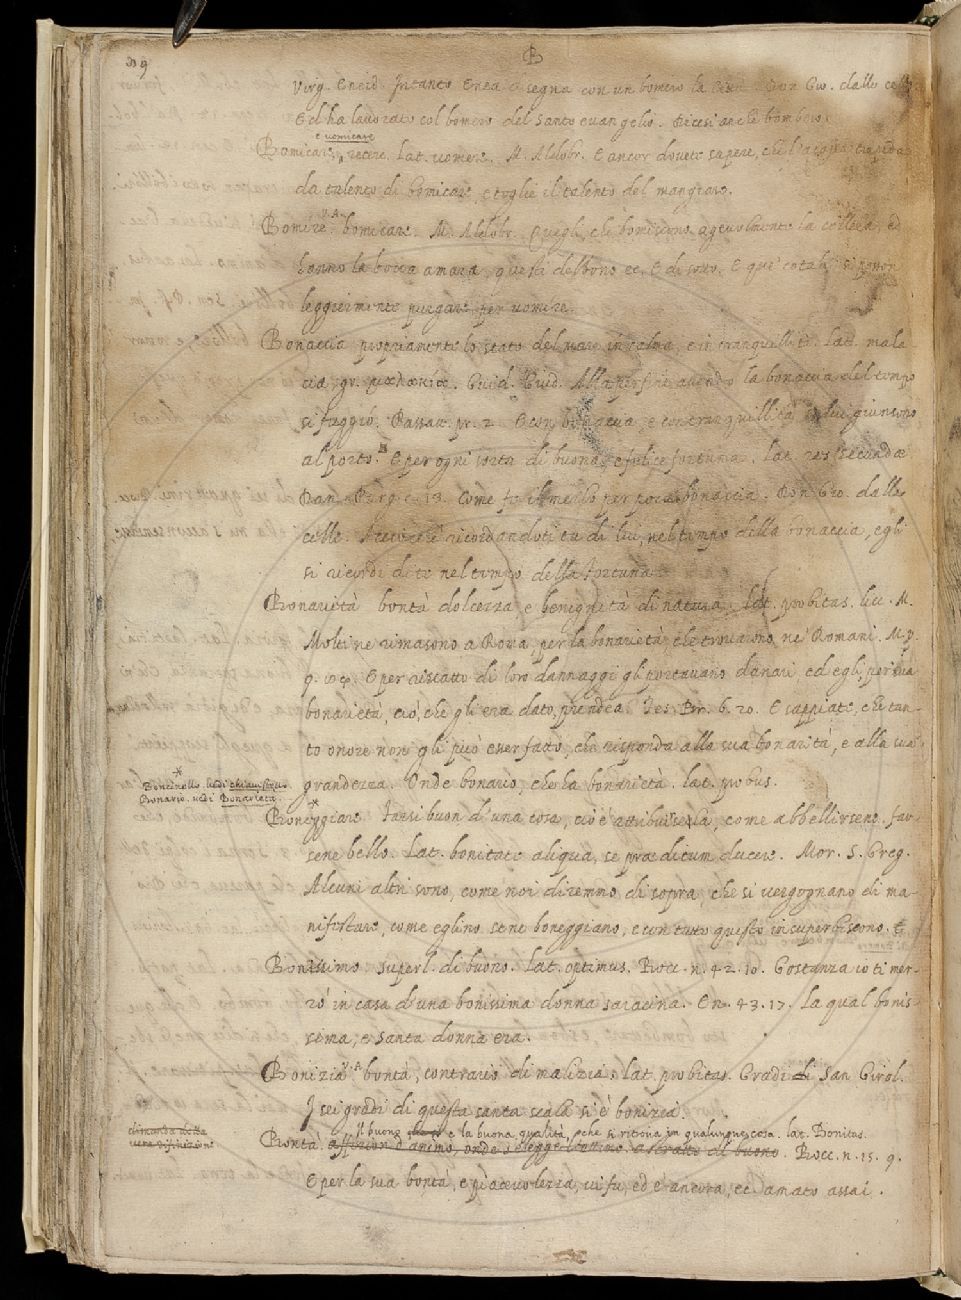 B
Virg. Eneid. Intanto Enea disegna con un bomero la Don Gio. dalle celle
Ed ha lavorato col bomero del Santo evangelio. Dicesi anche bombere.
e vomicare
Bomicare, recere. Lat. vomere. M. Aldobr. E ancor dovete sapere, che l'acqua tiepida
da talento di bomicare, e toglie il talento del mangiare.
Bomire V.A. bomicare. M. Aldobr. Quegli, che bomiscono agevolmente la collera, ed
hanno la bocca amara, questi debbono ec. E di sotto. E que' cotali si posson
leggiermente purgare per vomire.
Bonaccia propriamente lo stato del mare in calma, e in tranquillità. Lat. mala-
cia, gr. μαλακία. Guid. Guid. Alla per fine avendo la bonaccia del tempo
si fuggió. Passav. pr. 2. E con bonaccia, e con tranquillità giunsono
al porto. E per ogni sorta di buona, e felice fortuna. Lat. res secundæ
Dan. Purg. c. 13. Come fu il mezzo per bonaccia. Don Gio. dalle
celle. ricordandoti tu di lui nel tempo della bonaccia, egli
si ricordi di te nel tempo della fortuna
Bonarietà bontà dolcezza, e benignità di natura. Lat. probitas. Liv. M.
Molti ne rimasono a Roma, per la bonarietà, che trovarono ne' Romani. M. p.
9. E per riscatto di loro dannaggi gli portavano danari, ed egli, per sua
bonarietà, ciò, che gli era dato, prendea. Tes. Br. 6. 20. E sappiate, che tan-
to onore non gli può esser fatto, che risponda alla sua bonarità, e alla sua
grandezza. Onde bonario, che ha bonarietà. Lat. probus.
* Boncinello. vedi chiavistello
Bonario. vedi Bonarietà
Boneggiare * Farsi buon d'una cosa, cioè attribuirsela, come abbellirsene. far-
sene bello. Lat. bonitate aliqua, se præditum ducere. Mor. S. Greg.
Alcuni altri sono, come noi diremmo di sopra, che si vergognano di ma-
nifestare, come eglino se ne boneggiano, e con tutto questo insuperbiscono.
Bonissimo superl. di buono. Lat. optimus. Bocc. n. 42. 10. Gostanza io ti met-
rò in casa d'una bonissima donna saracina. E n. 43. 17. La qual bonis-
sima, e santa donna era.
Bonizia V.A. bontà, contrario di malizia. Lat. probitas. Gradi di San Girol.
I sei gradi di questa santa scala si è bonizia.
Il buono e la buona qualità, che si ritrova in qualunque cosa. Lat. Bonitas.
dimanda della
vera difinizione
Bontà. affezion d'animo, onde s'elegge l'ottimo. astratto di buono. Bocc. n. 15. 9.
E per la sua bontà, e piacevolezza, vi fu, ed è ancora, ec. amato assai.